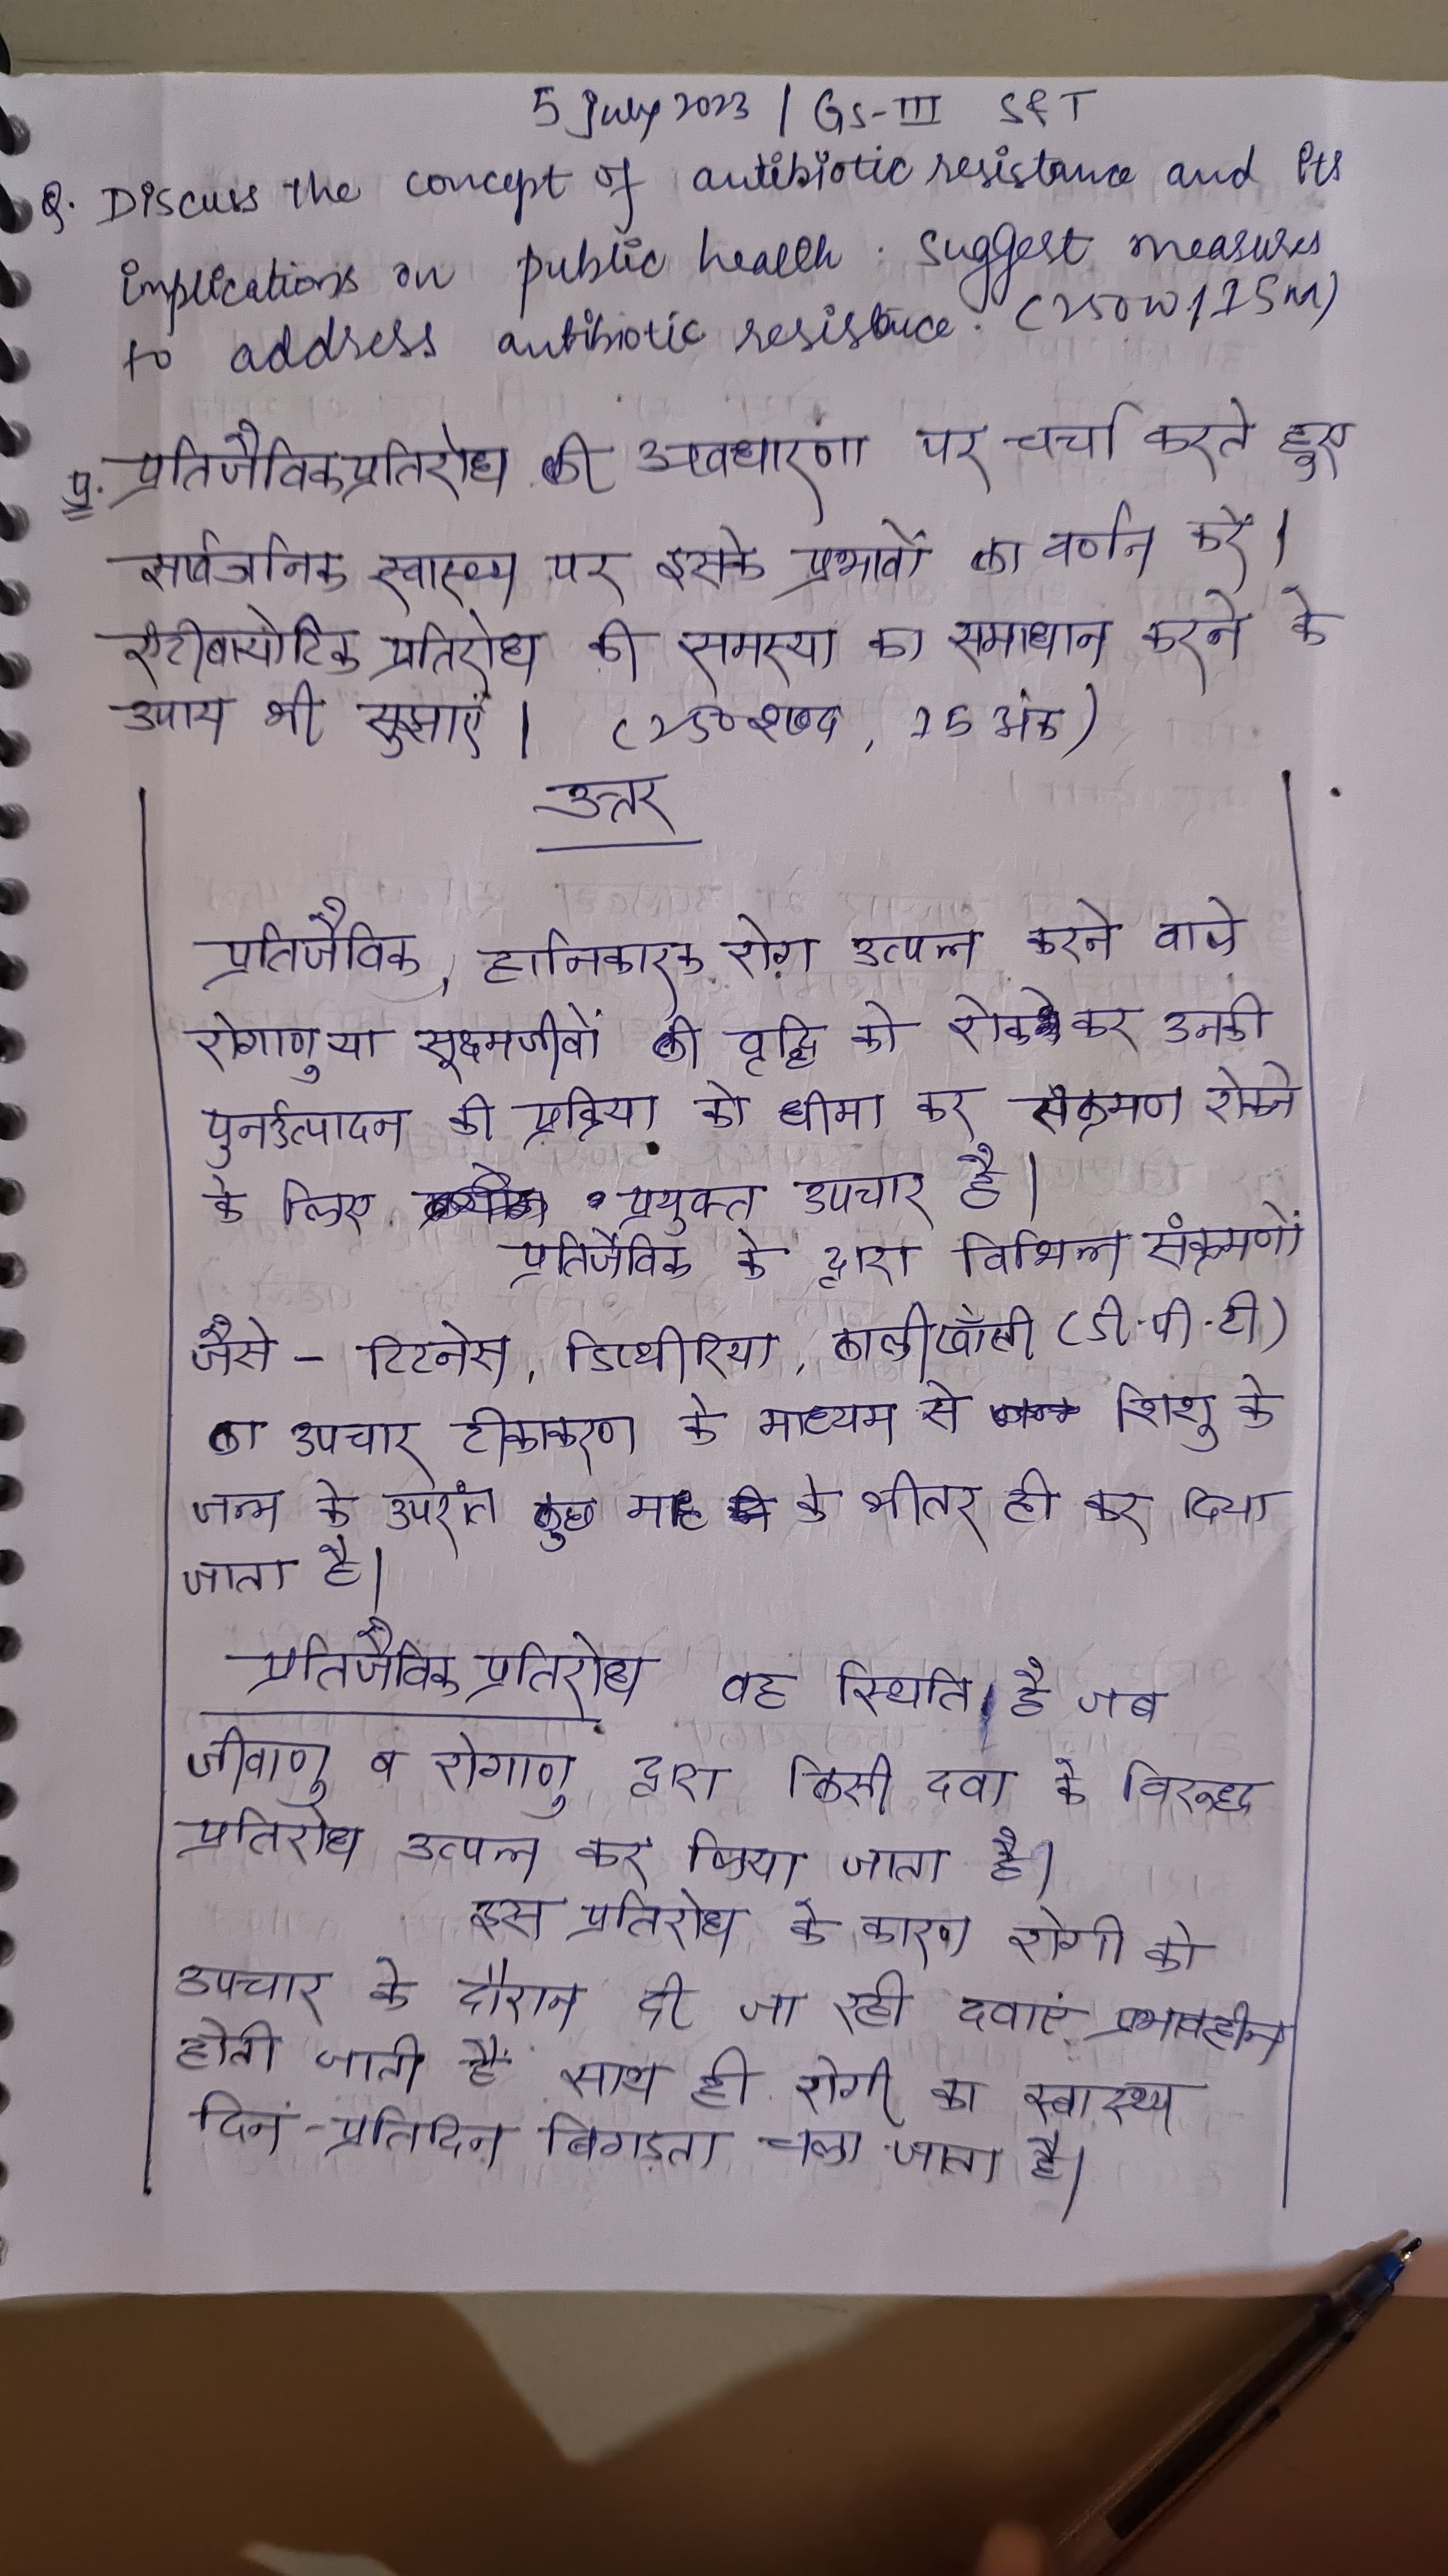 5 July 2023 | GS-III S&T
Q. Discuss the concept of antibiotic resistance and its
implications on public health. Suggest measures
to address antibiotic resistance. (250W/15M)
प्र. प्रतिजैविक प्रतिरोध की अवधारणा पर चर्चा करते हुए
सार्वजनिक स्वास्थ्य पर इसके प्रभावों का वर्णन करें।
एंटीबायोटिक प्रतिरोध की समस्या का समाधान करने के
उपाय भी सुझाएं। (250 शब्द, 15 अंक)
उत्तर
प्रतिजैविक, हानिकारक रोग उत्पन्न करने वाले
रोगाणु या सूक्ष्मजीवों की वृद्धि को रोककर उनकी
पुनर्उत्पादन की प्रक्रिया को धीमा कर संक्रमण रोकने
के लिए प्रयुक्त उपचार है।
प्रतिजैविक के द्वारा विभिन्न संक्रमणों
जैसे - टिटनेस, डिप्थीरिया, कालीखाँसी (डी.पी.टी)
का उपचार टीकाकरण के माध्यम से शिशु के
जन्म के उपरांत कुछ माह के भीतर ही कर दिया
जाता है।
प्रतिजैविक प्रतिरोध वह स्थिति है जब
जीवाणु व रोगाणु द्वारा किसी दवा के विरुद्ध
प्रतिरोध उत्पन्न कर लिया जाता है।
इस प्रतिरोध के कारण रोगी को
उपचार के दौरान दी जा रही दवाएं प्रभावहीन
होती जाती हैं साथ ही रोगी का स्वास्थ्य
दिन-प्रतिदिन बिगड़ता चला जाता है।